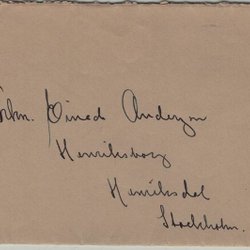 Einar Anderzon
Henriksborg
Henriksdal
Stockholm.